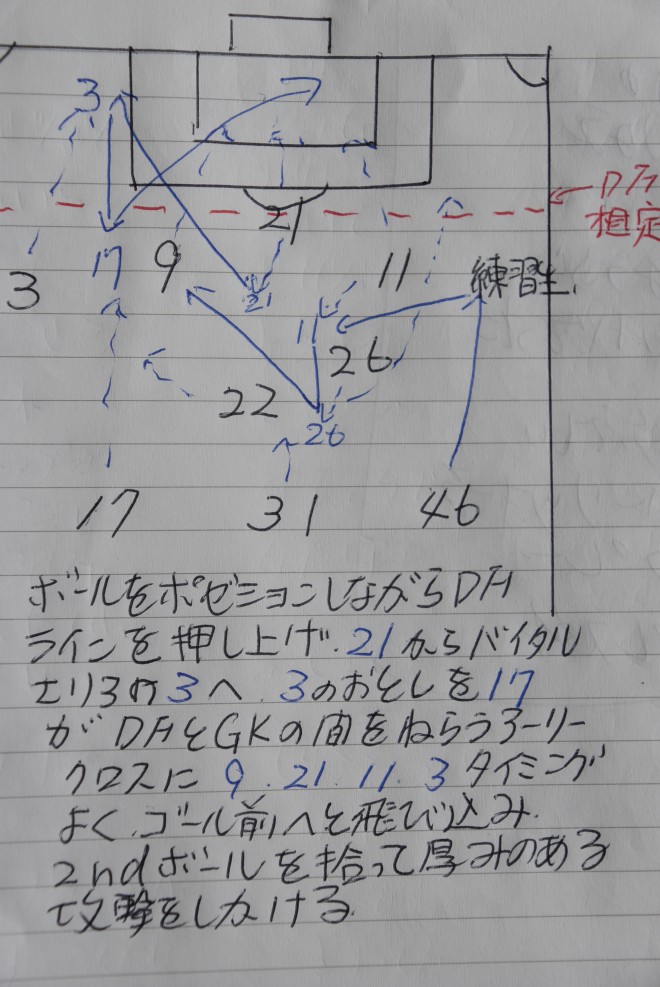 3
21
DF
想定
17
9
11
練習生
3
21
11
26
22
26
17
31
46
ボールをポゼションしながらDF
ラインを押し上げ.21からバイタル
エリアの3へ.3のおとしを17
がDFとGKの間をねらうアーリー
クロスに9.21.11.3タイミング
よく.ゴール前へと飛び込み.
2ndボールを拾って厚みのある
攻撃をしかける.